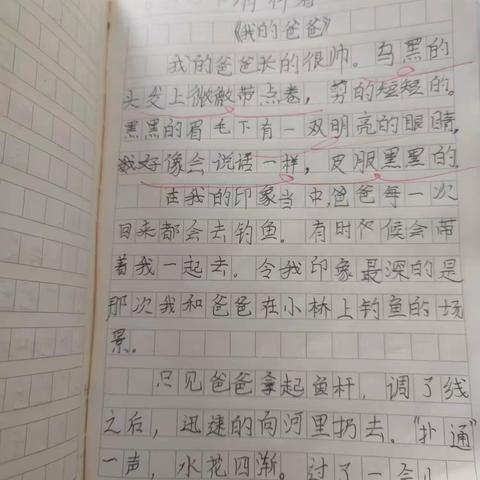 《我的爸爸》
我的爸爸长的很帅。乌黑的
头发上微微带点卷，剪的短短的。
黑黑的眉毛下有一双明亮的眼睛，
我好像会说话一样，皮服黑黑的
在我的印象当中，爸爸每一次
回来都会去钓鱼。有时候会带
着我一起去。令我印象最深的是
那次我和爸爸在小林上钓鱼的场
景。
只见爸爸拿起鱼杆，调了线
之后，迅速的向河里扔去。“扑通”
一声，水花四溅。过了一会儿